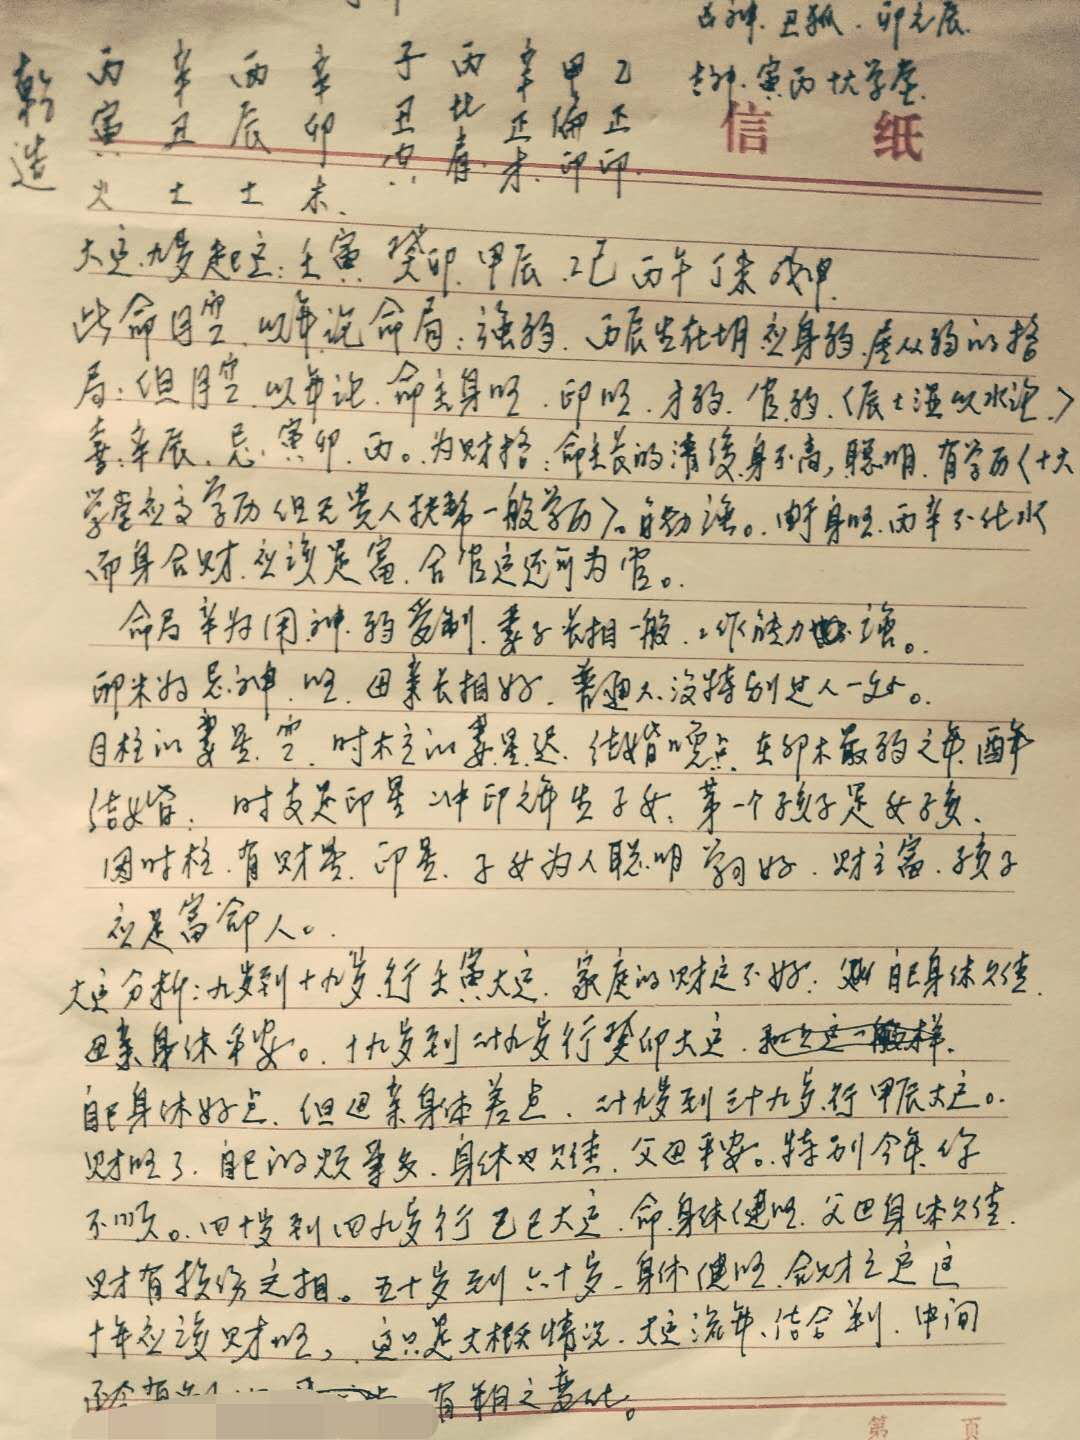 吉神.寅丙十大学堂.
信 纸
乾造
丙 辛 丙 辛
寅 丑 辰 卯
火 土 土 木.
子丑空
丙比肩.
辛正才.
甲偏印
乙正印.
大运.九岁起运:壬寅.癸卯.甲辰.乙巳 丙午 丁未 戊申.
此命月空.以年论命局:强弱.丙辰生在丑月应身弱.是从弱的格
局:但月空.以年论.命主身旺.印旺.才弱.官弱.〈辰土湿以水论.〉
喜:辛辰.忌:寅卯.丙。为财格:命主长的清俊身不高,聪明.有学历〈十大
学堂应高学历但无贵人扶帮一般学历〉。自勃强。由于身旺.丙辛不化水
而身合财.应该是富.合官运还可为官。
命局辛为用神.弱受制.妻子长相一般.工作能力强。
卯木为忌神.旺.母亲长相好.普通人.没特别过人一如。
日柱的妻星.空.时木主的妻星迟.结婚晚点.在卯木最弱之年.酉年
结婚:时支是印星.冲印之年生子女.第一个孩子是女孩.
因时柱.有财星.印星.子女为人聪明学习好.财主富.孩子
应是富命人。
大运分析:九岁到十九岁行壬寅大运.家庭的财运不好.自己身体欠佳.
母亲身体平安。十九岁到廿九岁行癸卯大运.
自己身体好点.但母亲身体差点.廿九岁到三十九岁.行甲辰大运。
财旺了.自己的烦事多.身体也欠佳.父母平安。特别今年.你
不顺。四十岁到四九岁行乙巳大运.命.身体健旺.父母身体欠佳.
财有损伤之相。五十岁到六十岁.身体健旺.合财之运这
十年应该财旺,这只是大概情况.大运流年.结合判.中间
有
第 页